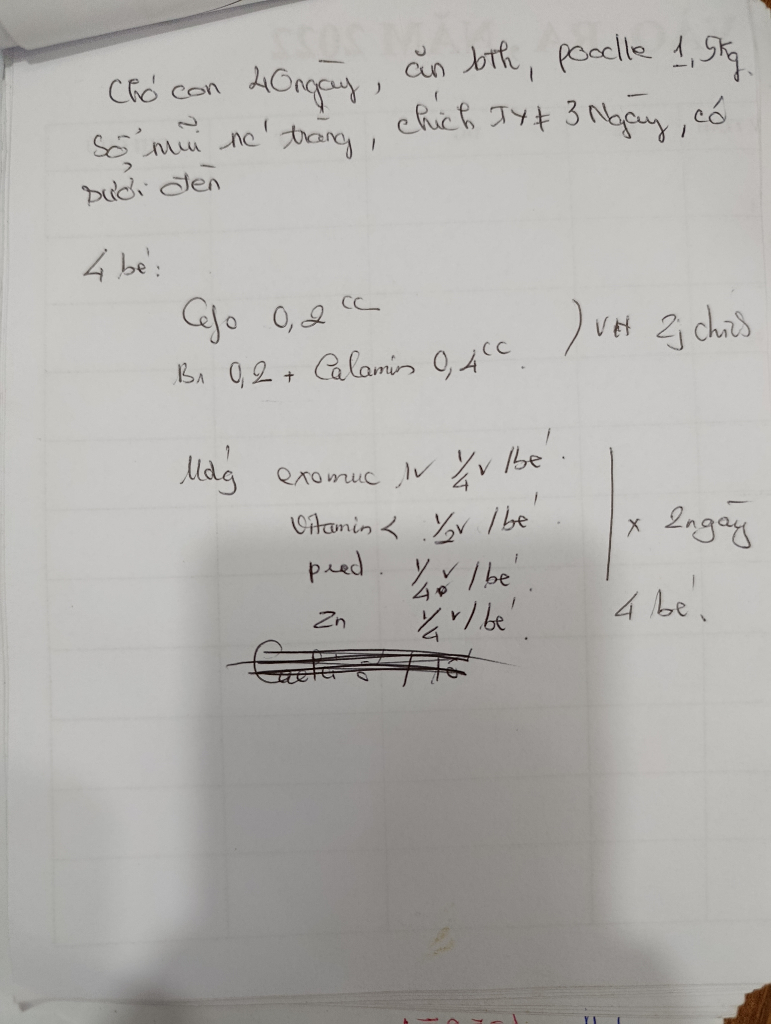 Chó con 40 ngày, ăn bth, poodle 1,5kg.
Sổ mũi nc' trắng, chích 3 Ngày, có
sưởi đèn
4 bé:
Cefo 0,2 cc
B1 0,2 + Calamin 0,4 cc.
) 2
exomuc 1/4 v /bé.
Vitamin C 1/2v /bé.
pred. 1/4 v /bé.
Zn 1/4 v/bé.
x 2 ngày
4 bé.